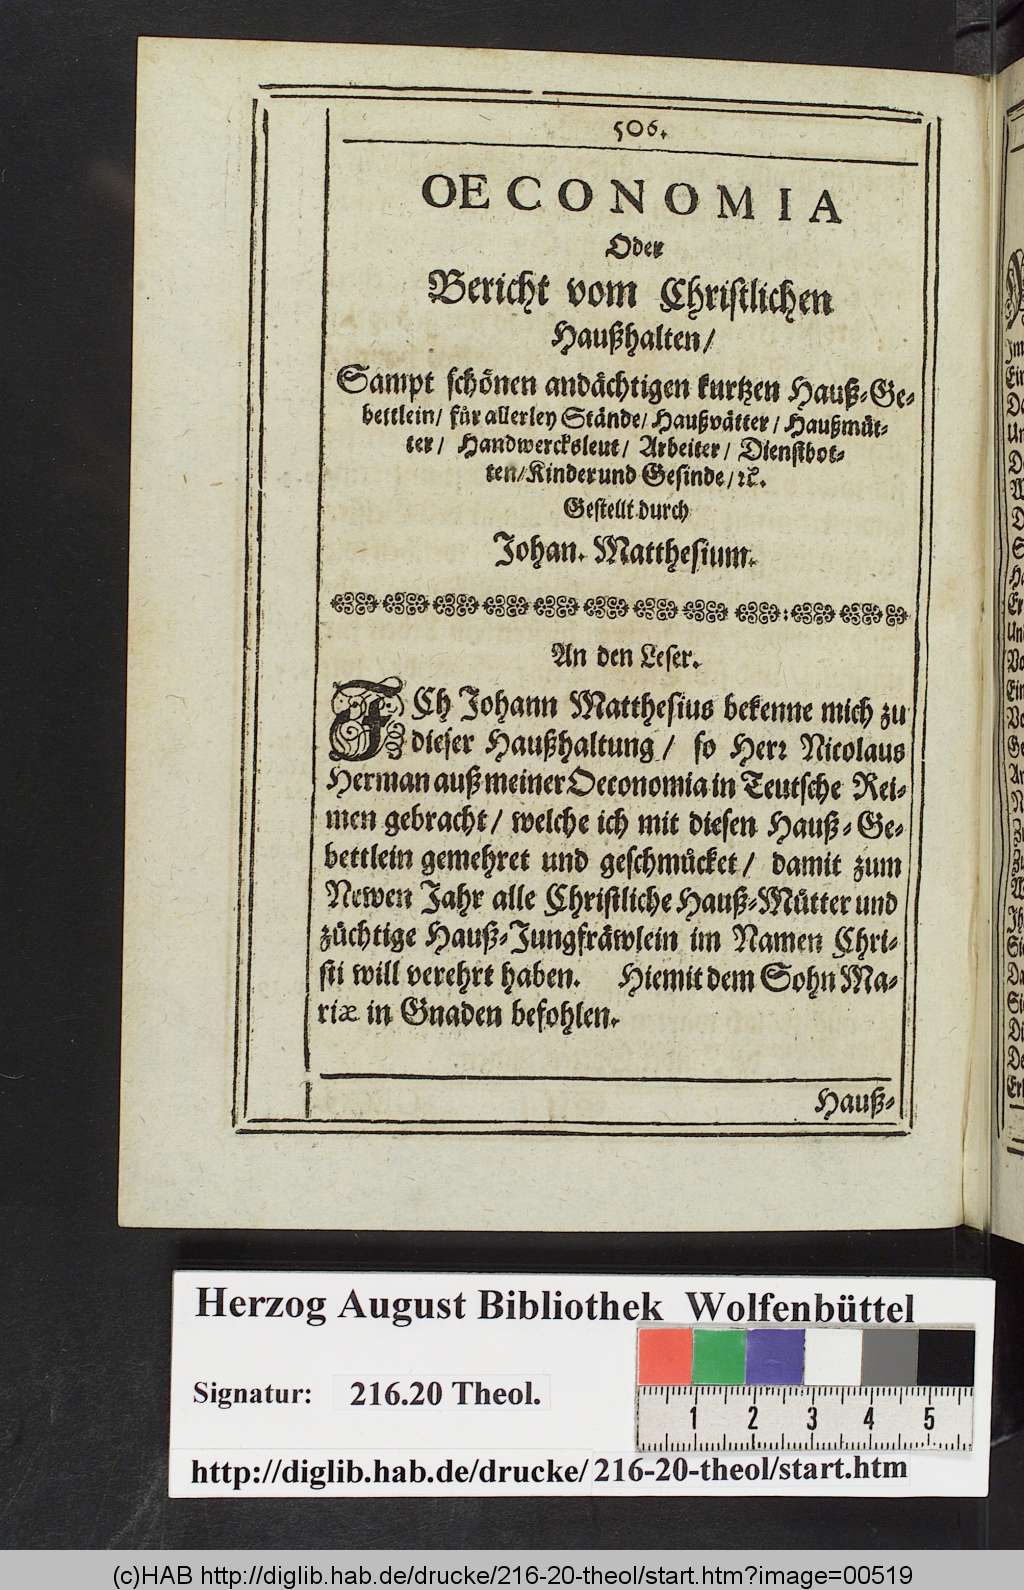 506.
OECONOMIA
Oder
Bericht vom Christlichen
Haußhalten/
Sampt schönen andächtigen kurtzen Hauß-Ge-
bettlein/ für allerley Stände/ Haußvätter/ Haußmüt-
ter/ Handwercksleut/ Arbeiter/ Dienstbot-
ten/ Kinder und Gesinde/ ꝛc.
Gestellt durch
Johan. Matthesium.
An den Leser.
ICh Johann Matthesius bekenne mich zu
dieser Haußhaltung/ so Herr Nicolaus
Herman auß meiner Oeconomia in Teutsche Rei-
men gebracht/ welche ich mit diesen Hauß-Ge-
bettlein gemehret und geschmücket/ damit zum
Newen Jahr alle Christliche Hauß-Mütter und
züchtige Hauß-Jungfräwlein im Namen Chri-
sti will verehrt haben. Hiemit dem Sohn Ma-
riæ in Gnaden befohlen.
Hauß-
Herzog August Bibliothek Wolfenbüttel
Signatur: 216.20 Theol.
1 2 3 4 5
http://diglib.hab.de/drucke/216-20-theol/start.htm
(c)HAB http://diglib.hab.de/drucke/216-20-theol/start.htm?image=00519